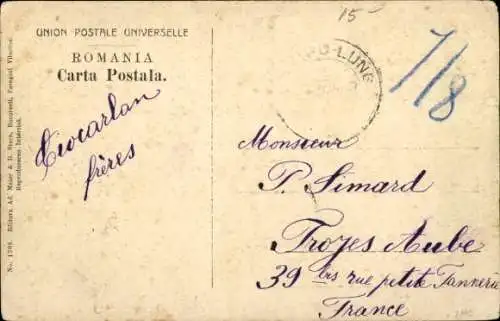 15
UNION POSTALE UNIVERSELLE
ROMANIA
Carta Postala.
PU-LUNG
7/8
Ciocarlan
frères
Monsieur
P. Simard
Troyes Aube
39 bis rue petite Tannerie
France
No. 1798. Editura Ad. Maier & D. Stern, Bucuresti, Pasagiul Vilacros.
Reproducerea Interzisă.